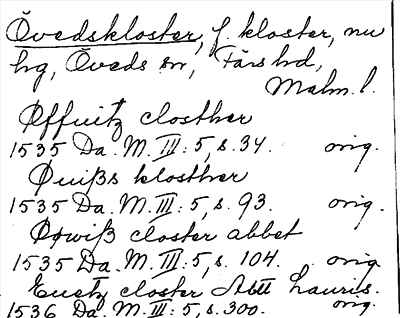 Övedskloster, f. kloster, nu
hg, Öveds sn, Färs hd,
Malm. l.
Øffuitz closther
1535 Da. M. III: 5, s. 34. orig.
Øuißs klosther
1535 Da. M. III: 5, s. 93. orig.
Øowiß closter abbet
1535 Da. M. III: 5, s. 104. orig
closter Abtt Lauris.
1536 Da. M. III: 5, s. 300. orig.